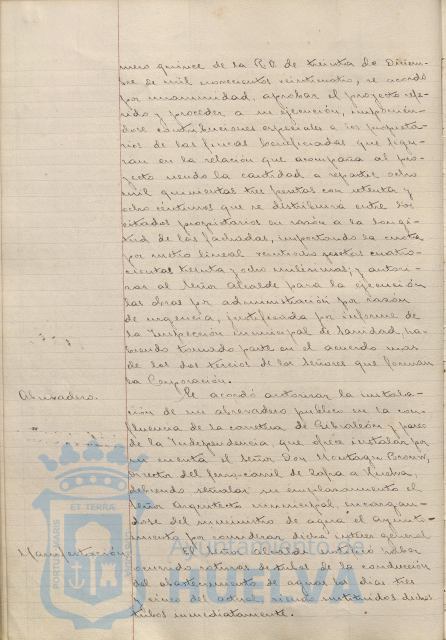 mero quince de la R.O. de treinta de Diciem-
bre de mil novecientos veinticuatro, se acordó
por unanimidad, aprobar el proyecto refe-
rido y proceder a su ejecución, imponién-
dose contribuciones especiales a los propieta-
rios de las fincas beneficiadas que figu-
ran en la relación que acompaña al pro-
yecto siendo la cantidad a repartir ocho
mil quinientas tres pesetas con setenta y
ocho céntimos que se distribuirá entre los
citados propietarios en razón a la longi-
tud de las fachadas, importando la cuota
por metro lineal veintiocho pesetas cuatro-
cientas treinta y ocho milésimas; y autori-
zar al Señor Alcalde para la ejecución
las obras por administración por razón
de urgencia, justificada por informe de
la Inspección municipal de Sanidad, ha-
biendo tomado parte en el acuerdo más
de los dos tercios de los Señores que forman
la Corporación.
Abrevadero. Se acordó autorizar la instala-
ción de un abrevadero público en la con-
fluencia de la carretera de Gibraleón y paseo
de la Independencia, que ofrece instalar por
su cuenta el Señor Don Montagu Brown,
Director del ferro-carril de Zafra a Huelva,
debiendo señalar su emplazamiento el
Señor Arquitecto municipal, encargán-
dose del suministro de agua el Ayunta-
miento por considerar dicha interés general
Manifestación. El Señor Alcalde haber
ocurrido roturas de tubos de la conducción
del abastecimiento de aguas los días tres
y cinco del actual siendo sustituidos dichos
tubos inmediatamente.
PORTUS MARIS
ET TERRAE
Ayuntamiento de
HUELVA